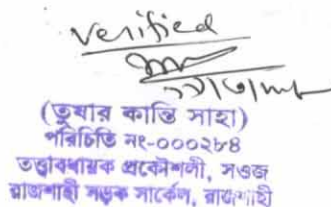 verified
(তুষার কান্তি সাহা)
পরিচিতি নং-০০০২৮৪
তত্ত্বাবধায়ক প্রকৌশলী, সওজ
রাজশাহী সড়ক সার্কেল, রাজশাহী